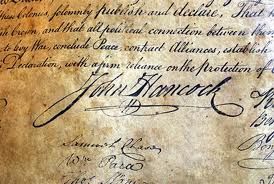 these Colonies, solemnly publish and declare, That
British Crown, and that all political connection between them
to levy War, conclude Peace, contract Alliances, establish
Declaration, with a firm reliance on the protection of
John Hancock
Samuel Chase
Wm Paca
Thos Stone